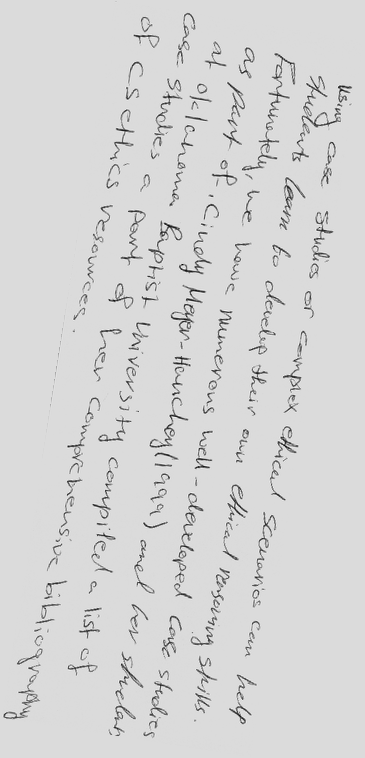 Using case studies or complex ethical scenarios can help
students learn to develop their own ethical reasoning skills.
Fortunately, we have numerous well-developed case studies
as part of. Cindy Meyer-Hanchey (1999) and her students
at oklahoma Baptist University compiled a list of
case studies a part of her comprehensive bibliography
of CS ethics resources.